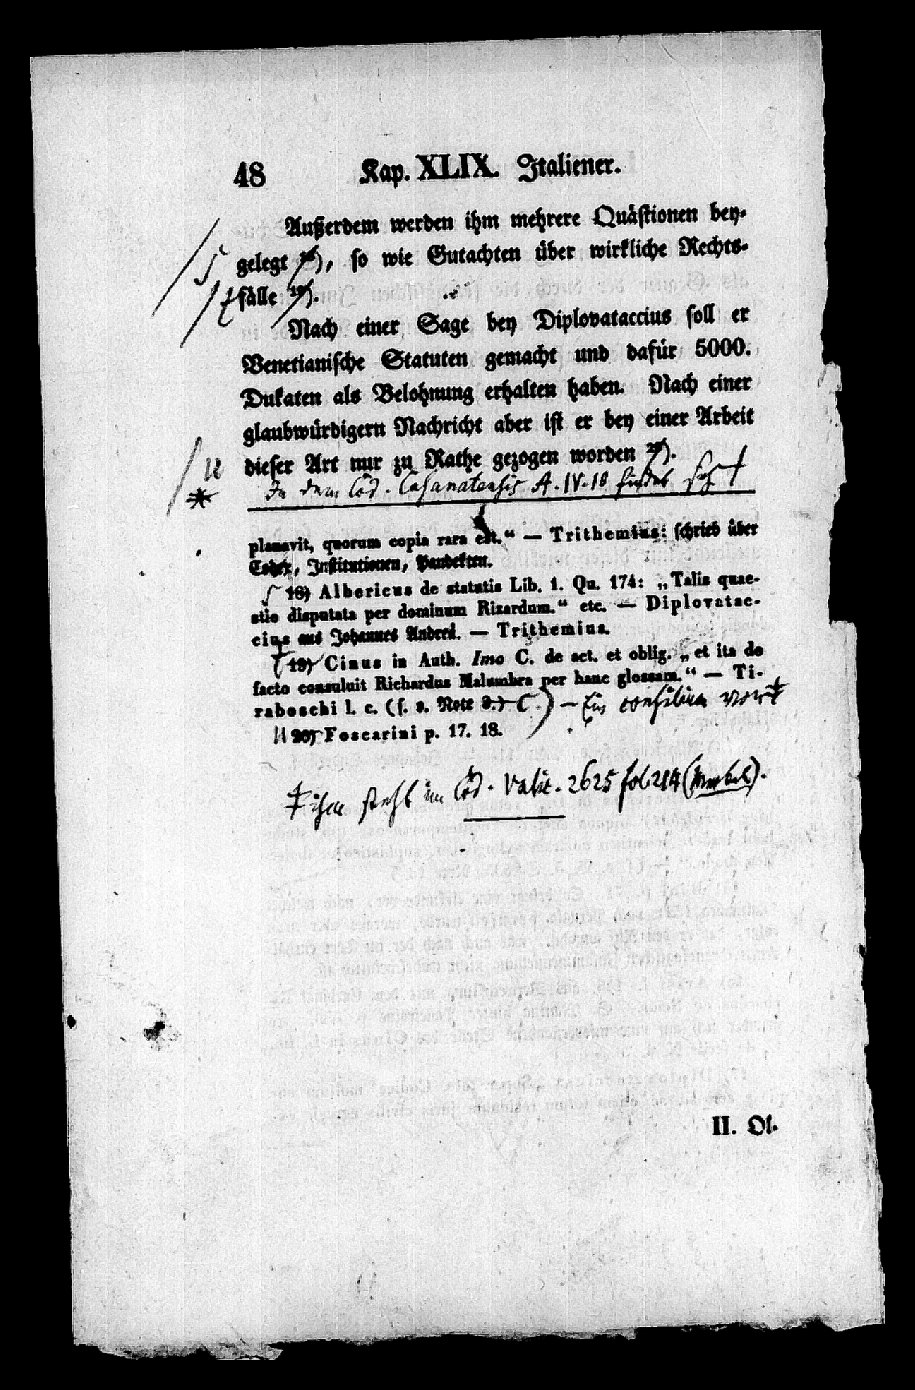 48 Kap. XLIX. Italiener.
Außerdem werden ihm mehrere Quästionen bey-
gelegt 18), so wie Gutachten über wirkliche Rechts-
fälle 19).
Nach einer Sage bey Diplovataccius soll er
Venetianische Statuten gemacht und dafür 5000.
Dukaten als Belohnung erhalten haben. Nach einer
glaubwürdigern Nachricht aber ist er bey einer Arbeit
dieser Art nur zu Rathe gezogen worden 20).
In dem Cod. Casanatensis A. IV. 18 findet sich
planavit, quorum copia rara est.“ — Trithemius: schrieb über
Codex, Institutionen, Pandekten.
18) Albericus de statutis Lib. 1. Qu. 174: „Talis quae-
stio disputata per dominum Rizardum.“ etc. — Diplovatac-
cius aus Johannes Andreä. — Trithemius.
19) Cinus in Auth. Imo C. de act. et oblig. „et ita de
facto consuluit Richardus Malumbra per hanc glossam.“ — Ti-
raboschi l. c. (s. o. Note d.) — Ein consilium von
20) Foscarini p. 17. 18.
ihm steht im Cod. Vatic. 2625 fol. 214
II. Ol.